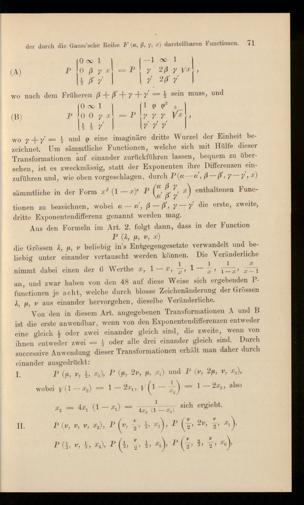 der durch die Gauss'sche Reihe F (α, β, γ, x) darstellbaren Functionen. 71
(A) P { 0 ∞ 1 / 0 β γ x / ½ β′ γ′ } = P { −1 ∞ 1 / γ 2β γ √x / γ′ 2β′ γ′ },
wo nach dem Früheren β + β′ + γ + γ′ = ½ sein muss, und
(B) P { 0 ∞ 1 / 0 0 γ x / ⅓ ⅓ γ′ } = P { 1 ρ ρ² / γ γ γ ∛x / γ′ γ′ γ′ },
wo γ + γ′ = ⅓ und ρ eine imaginäre dritte Wurzel der Einheit be-
zeichnet. Um sämmtliche Functionen, welche sich mit Hülfe dieser
Transformationen auf einander zurückführen lassen, bequem zu über-
sehen, ist es zweckmässig, statt der Exponenten ihre Differenzen ein-
zuführen und, wie oben vorgeschlagen, durch P(α − α′, β − β′, γ − γ′, x)
sämmtliche in der Form x^δ (1 − x)^ε P ( α β γ / α′ β′ γ′ x ) enthaltenen Func-
tionen zu bezeichnen, wobei α − α′, β − β′, γ − γ′ die erste, zweite,
dritte Exponentendifferenz genannt werden mag.
Aus den Formeln im Art. 2. folgt dann, dass in der Function
P (λ, μ, ν, x)
die Grössen λ, μ, ν beliebig in's Entgegengesetzte verwandelt und be-
liebig unter einander vertauscht werden können. Die Veränderliche
nimmt dabei einen der 6 Werthe x, 1 − x, 1/x, 1 − 1/x, 1/(1−x), x/(x−1)
an, und zwar haben von den 48 auf diese Weise sich ergebenden P-
functionen je acht, welche durch blosse Zeichenänderung der Grössen
λ, μ, ν aus einander hervorgehen, dieselbe Veränderliche.
Von den in diesem Art. angegebenen Transformationen A und B
ist die erste anwendbar, wenn von den Exponentendifferenzen entweder
eine gleich ½ oder zwei einander gleich sind, die zweite, wenn von
ihnen entweder zwei = ⅓ oder alle drei einander gleich sind. Durch
successive Anwendung dieser Transformationen erhält man daher durch
einander ausgedrückt:
I. P (μ, ν, ½, x₂), P (μ, 2ν, μ, x₁) und P (ν, 2μ, ν, x₃),
wobei √(1 − x₂) = 1 − 2x₁, √(1 − 1/x₂) = 1 − 2x₃, also
x₂ = 4x₁ (1 − x₁) = 1/(4x₃ (1 − x₃)) sich ergiebt.
II. P (ν, ν, ν, x₃), P (ν, ν/2, ½, x₂), P (ν/2, 2ν, ν/2, x₁),